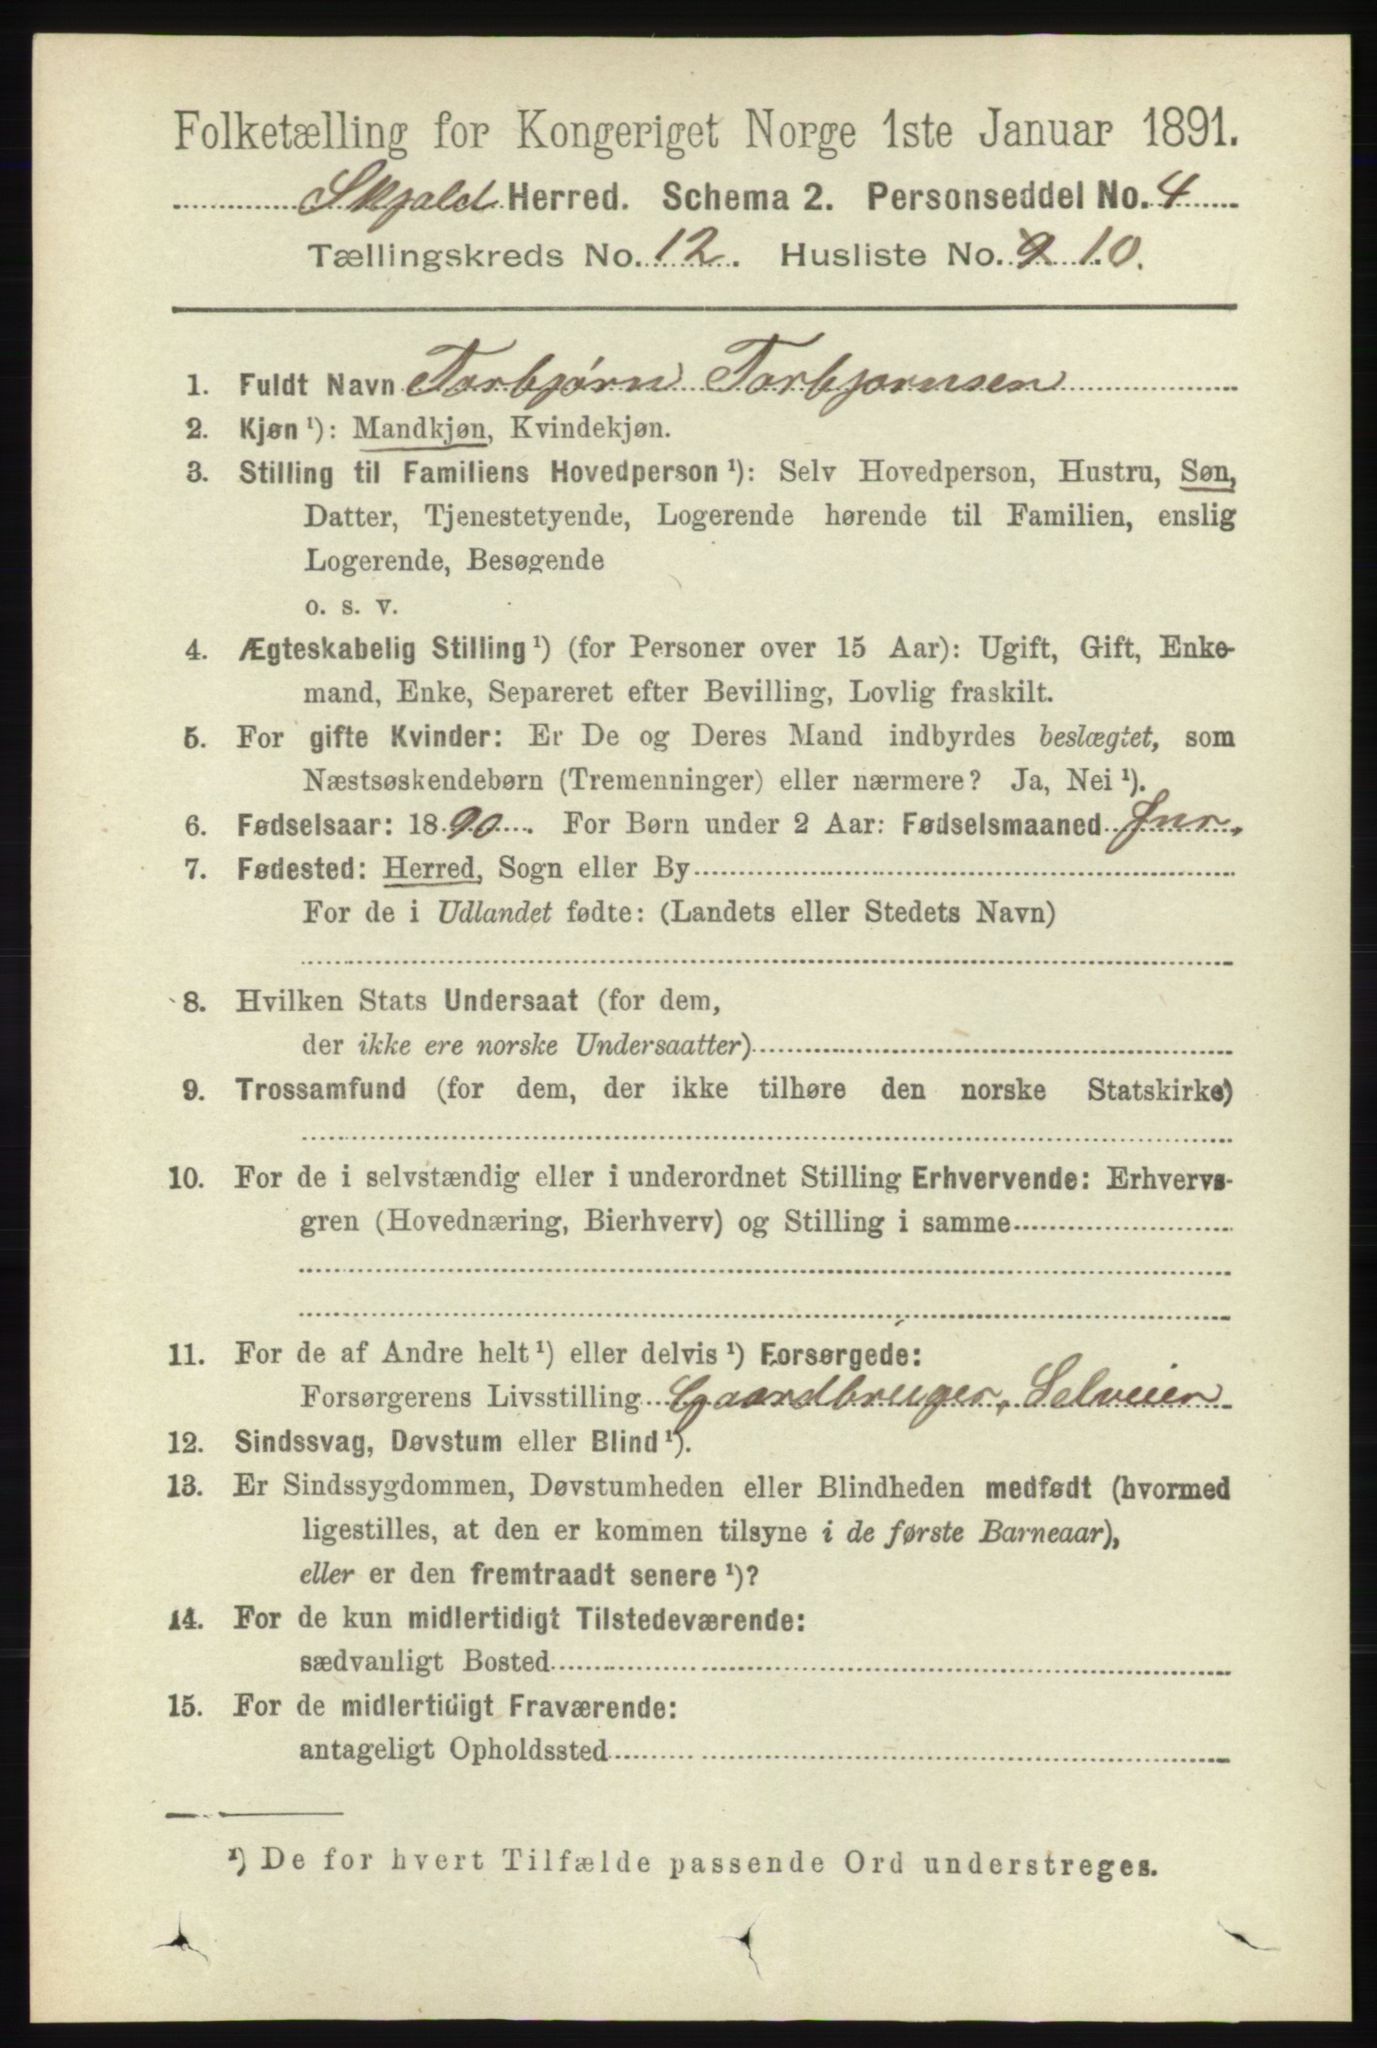 Folketælling for Kongeriget Norge 1ste Januar 1891.
Skjold Herred. Schema 2. Personseddel No. 4
Tællingskreds No. 12. Husliste No. 9 10.
1. Fuldt Navn Torbjørn Torbjørnsen
2. Kjøn ¹): Mandkjøn, Kvindekjøn.
3. Stilling til Familiens Hovedperson ¹): Selv Hovedperson, Hustru, Søn,
Datter, Tjenestetyende, Logerende hørende til Familien, enslig
Logerende, Besøgende
o. s. v.
4. Ægteskabelig Stilling ¹) (for Personer over 15 Aar): Ugift, Gift, Enke-
mand, Enke, Separeret efter Bevilling, Lovlig fraskilt.
5. For gifte Kvinder: Er De og Deres Mand indbyrdes beslægtet, som
Næstsøskendebørn (Tremenninger) eller nærmere? Ja, Nei ¹).
6. Fødselsaar: 1890. For Børn under 2 Aar: Fødselsmaaned
7. Fødested: Herred, Sogn eller By
For de i Udlandet fødte: (Landets eller Stedets Navn)
8. Hvilken Stats Undersaat (for dem,
der ikke ere norske Undersaatter)
9. Trossamfund (for dem, der ikke tilhøre den norske Statskirke)
10. For de i selvstændig eller i underordnet Stilling Erhvervende: Erhvervs-
gren (Hovednæring, Bierhverv) og Stilling i samme
11. For de af Andre helt ¹) eller delvis ¹) Forsørgede:
Forsørgerens Livsstilling Gaardbruger, Selveier
12. Sindssvag, Døvstum eller Blind ¹).
13. Er Sindssygdommen, Døvstumheden eller Blindheden medfødt (hvormed
ligestilles, at den er kommen tilsyne i de første Barneaar),
eller er den fremtraadt senere ¹)?
14. For de kun midlertidigt Tilstedeværende:
sædvanligt Bosted
15. For de midlertidigt Fraværende:
antageligt Opholdssted
¹) De for hvert Tilfælde passende Ord understreges.